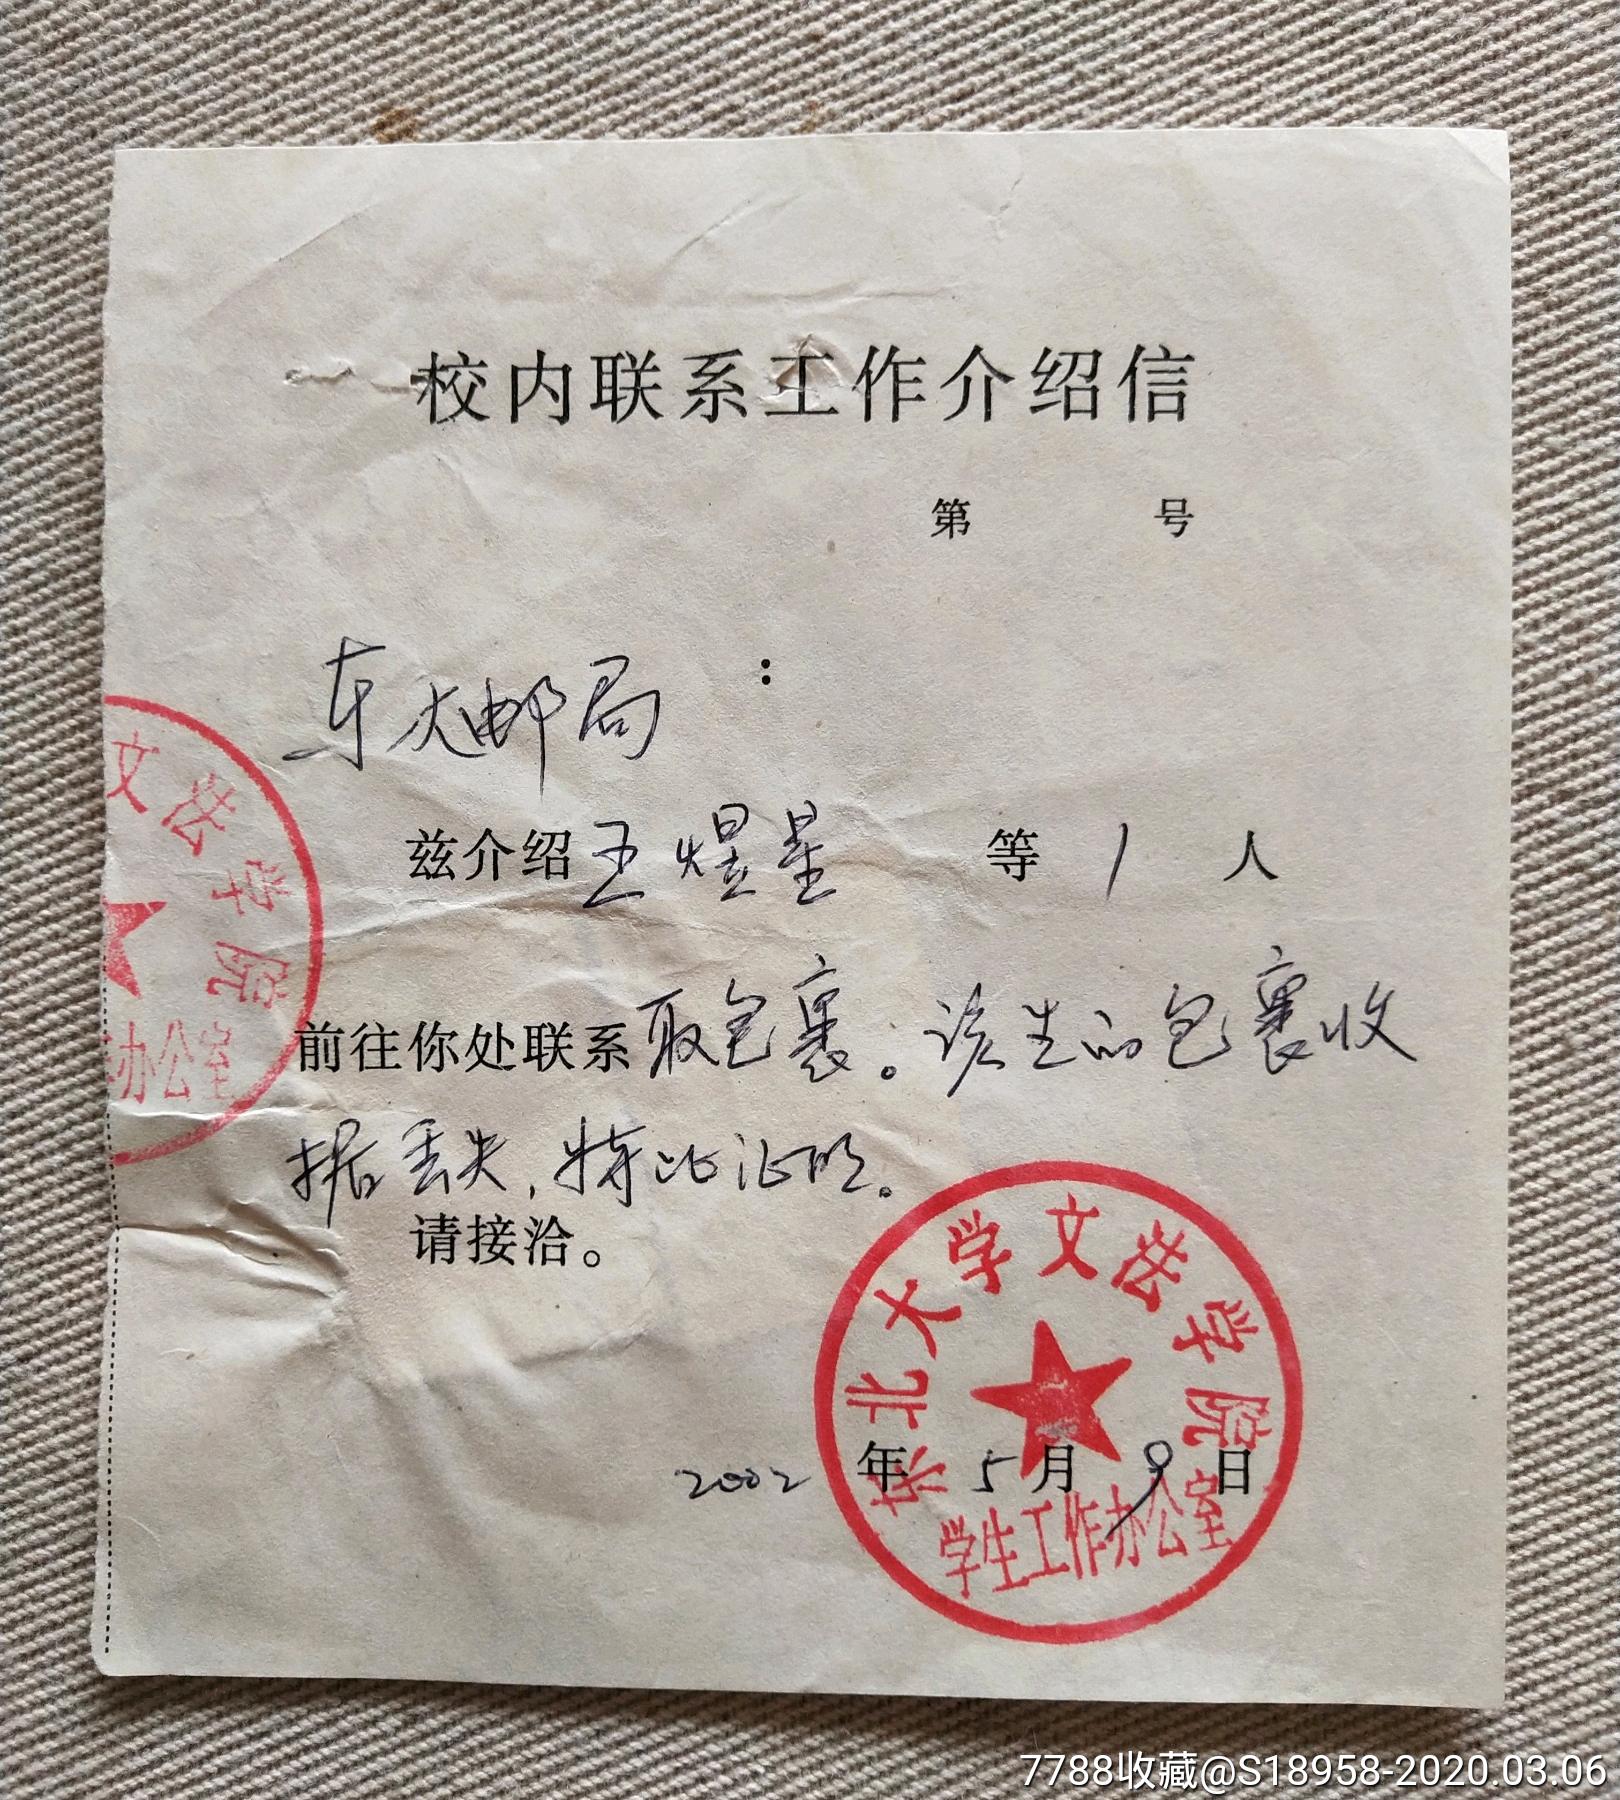 校内联系工作介绍信
第 号
东大邮局 :
兹介绍王煜星 等 1 人
前往你处联系取包裹。该生的包裹收
据丢失,特此证明。
请接洽。
2002 年 5 月 9 日
东北大学文法学院
学生工作办公室
文法学院
办公室
7788收藏@S18958-2020.03.06